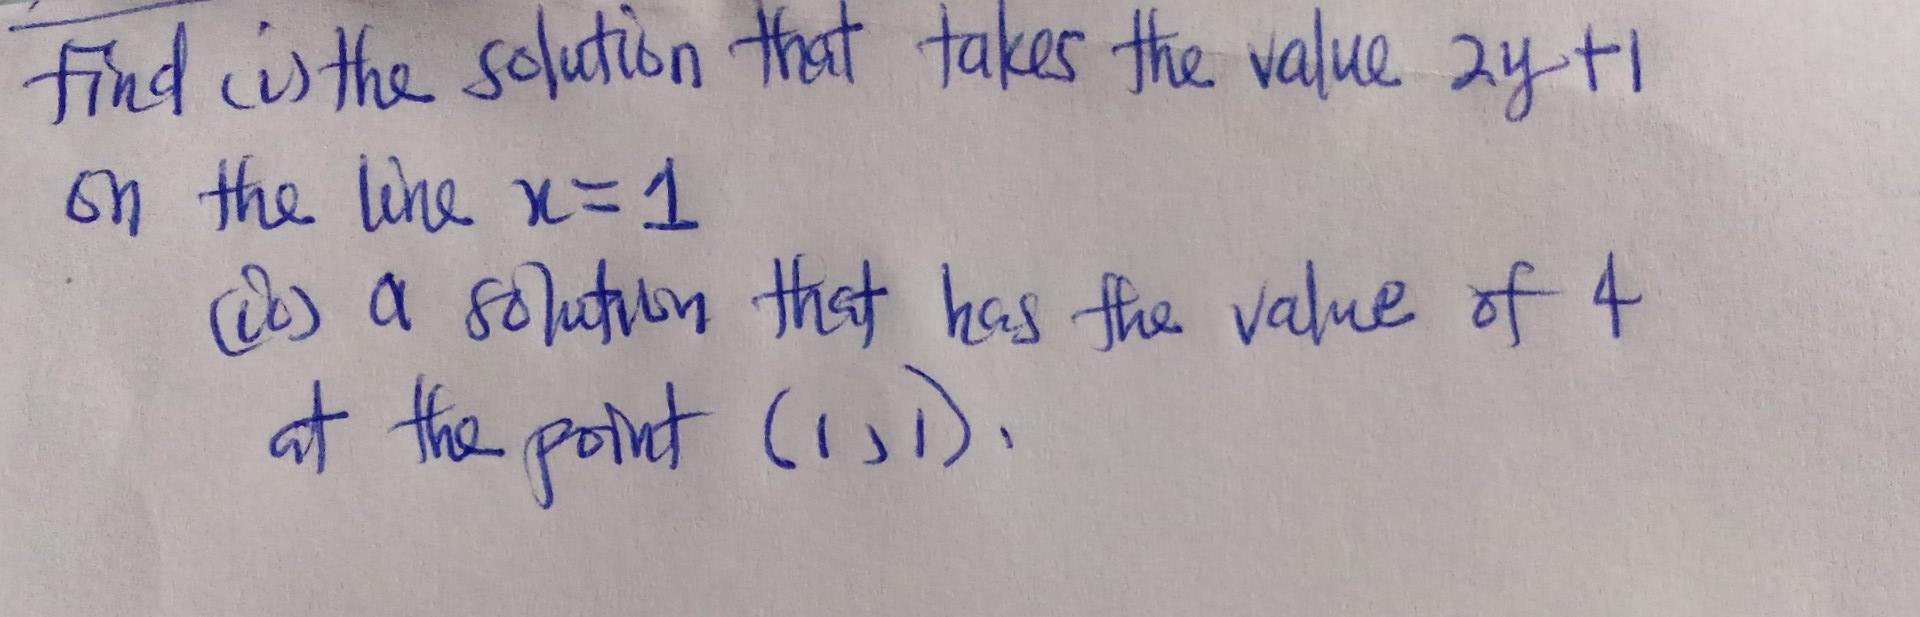 find (i) the solution that takes the value 2y+1
on the line x=1
(ii) a solution that has the value of 4
at the point (1,1).